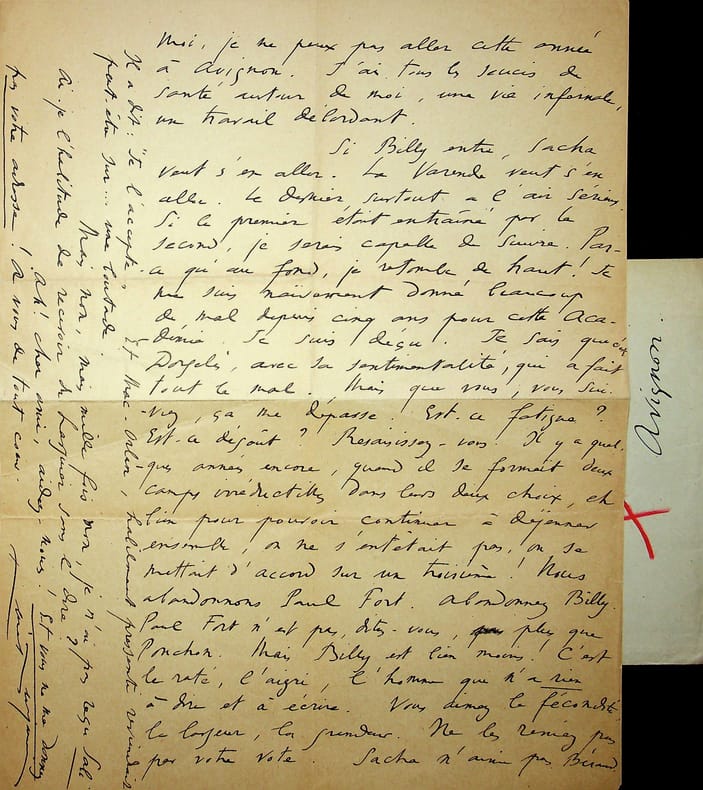 Moi, je ne peux pas aller cette année
à Avignon. J'ai tous les soucis de
santé autour de moi, une vie infernale,
un travail débordant.
Si Billy entre, Sacha
veut s'en aller. La Varende veut s'en
aller. Le dernier surtout a l'air sérieux.
Si le premier était entraîné par le
second, je serais capable de suivre. Par-
ce qu'au fond, je retombe de haut! Je
me suis naïvement donné beaucoup
de mal depuis cinq ans pour cette Aca-
démie. Je suis déçu. Je sais que c'est
Dorgelès, avec sa sentimentalité, qui a fait
tout le mal. Mais que vous, vous sui-
viez, ça me dépasse. Est-ce fatigue?
Est-ce dégoût? Ressaisissez-vous. Il y a quel-
ques années encore, quand il se formait deux
camps irréductibles dans leurs deux choix, eh
bien pour pouvoir continuer à déjeuner
ensemble, on ne s'entêtait pas, on se
mettait d'accord sur un troisième! Nous
abandonnons Paul Fort. Abandonnez Billy.
Paul Fort n'est pas, dites-vous, plus que
Ponchon. Mais Billy est bien moins. C'est
le raté, l'aigri, l'homme qui n'a rien
à dire et à écrire. Vous aimez la fécondité
la largeur, la grandeur. Ne les reniez pas
par votre vote. Sacha n'aime pas Béraud.
Il a dit: "Je l'accepte". Et Mac-Orlan, habilement pressenti reviendrait
peut-être sur... une boutade.
Mais non, mais mille fois non, je n'ai pas reçu Sali
Ai-je l'habitude de recevoir de Larguier sans le dire?
Ah! cher ami, aidez-nous! Et vous ne me donnez
pas votre adresse! A vous de tout cœur.
Avignon.